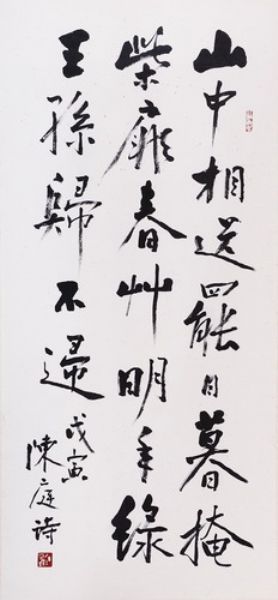 山中相送罷日暮掩
柴扉春艸明年綠
王孫歸不歸
戊寅
陳庭詩